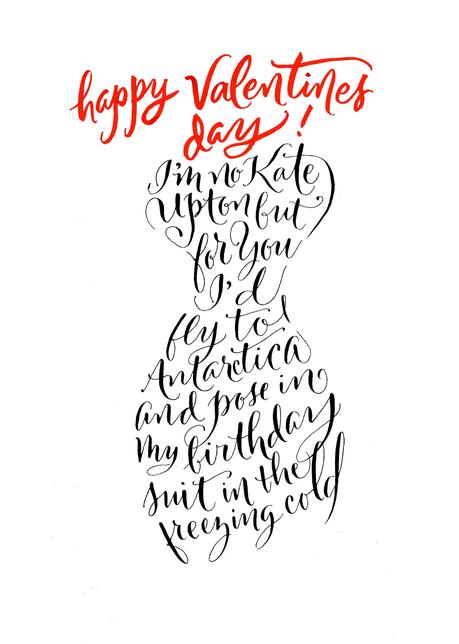 happy Valentines
day!
I'm no Kate
Upton but
for you
I'd
fly to
Antarctica
and pose in
my birthday
suit in the
freezing cold